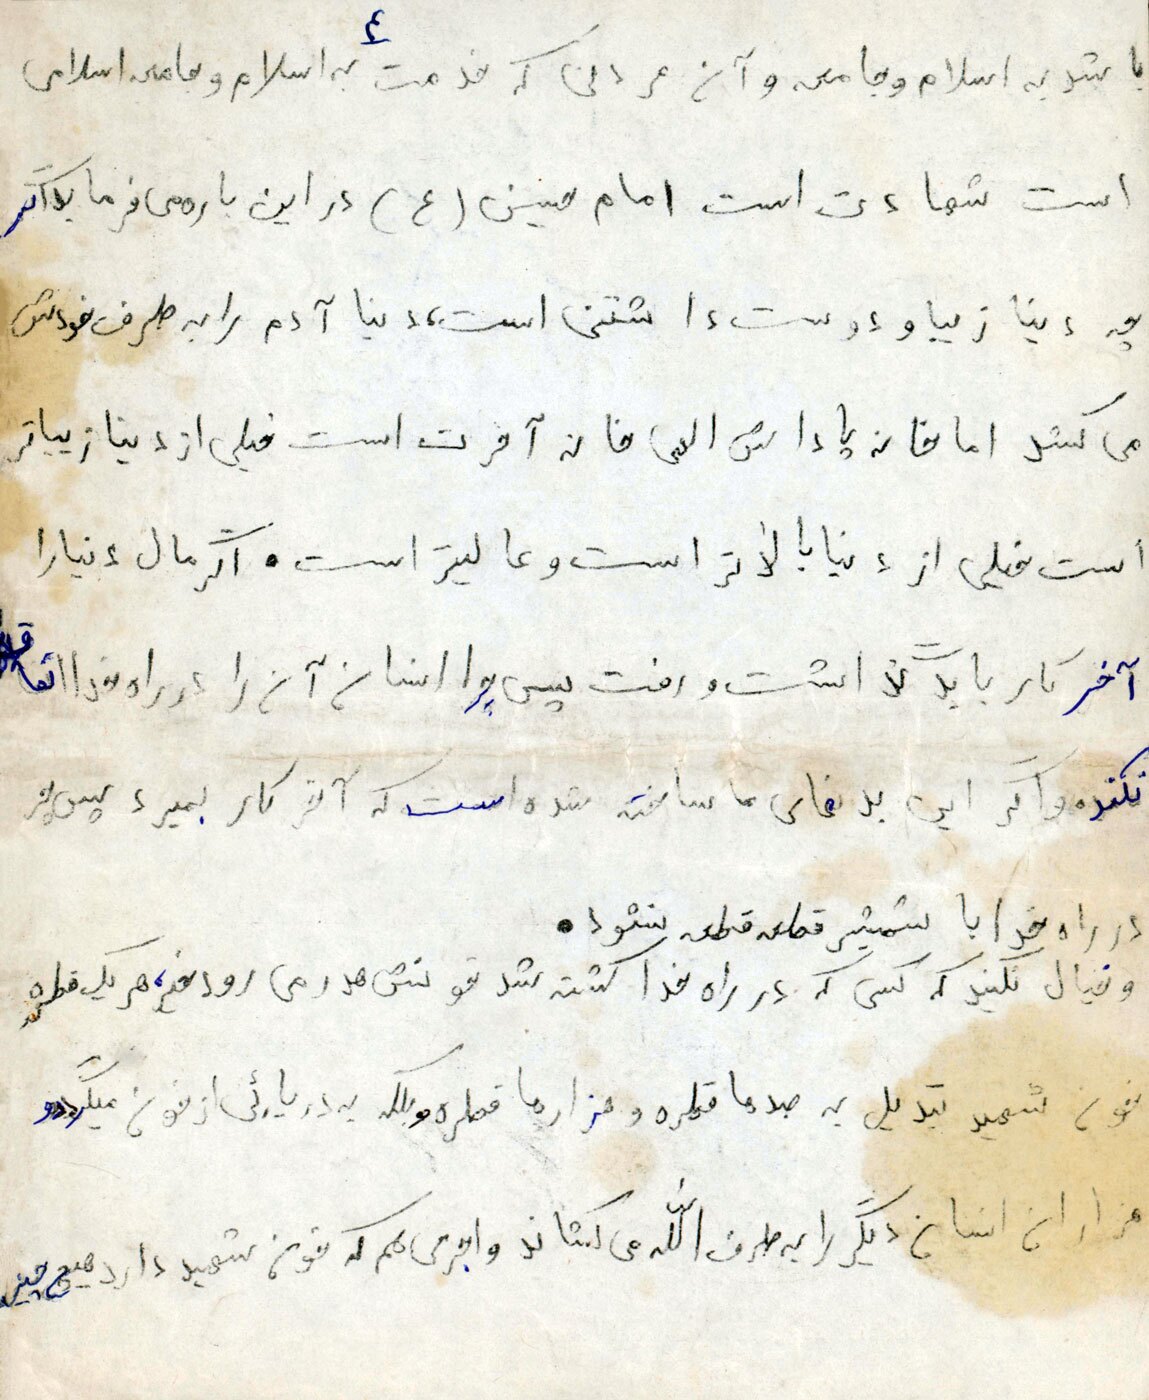 ۴
باشد به اسلام و جامعه و آن مردنی که خدمت به اسلام و جامعه اسلامی
است شهادت است امام حسین (ع) در این باره می فرماید اگر
چه دنیا زیبا و دوست داشتنی است، دنیا آدم را به طرف خودش
می کشد اما خانه پاداش الهی خانه آخرت است خیلی از دنیا زیباتر
است خیلی از دنیا بالاتر است و عالیتر است . اگر مال دنیا را
آخر کار باید گذاشت و رفت پس چرا انسان آن را در راه خدا انفاق
نکند، و اگر این بدنهای ما ساخته شده است که آخر کار بمیرد پس چرا
در راه خدا با شمشیر قطعه قطعه نشود .
و خیال نکنید که کسی که در راه خدا کشته شد خونش هدر می رود خیر، هر یک قطره
خون شهید تبدیل به صدها قطره و هزارها قطره و بلکه به دریائی از خون میگردد و
هزاران انسان دیگر را به طرف الله می کشاند و اجری هم که خون شهید دارد هیچ چیز